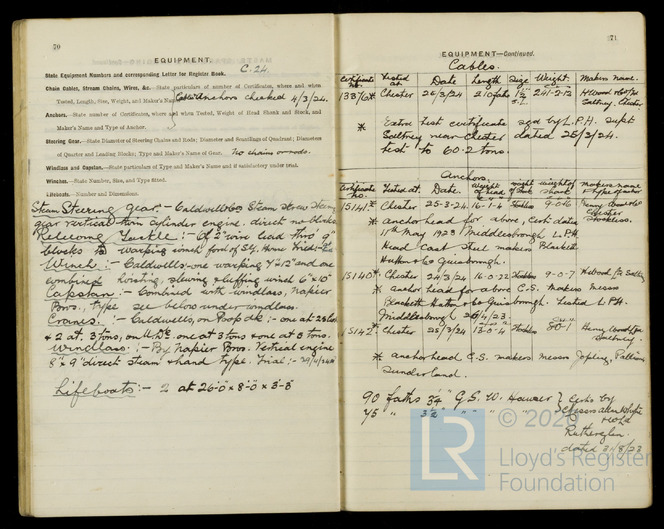 70
EQUIPMENT.
State Equipment Numbers and corresponding Letter for Register Book. C.24.
Chain Cables, Stream Chains, Wires, &c.—State particulars of number of Certificates, where and when
Tested, Length, Size, Weight, and Maker's Name. Cables & anchors checked 4/3/24.
Anchors.—State number of Certificates, where and when Tested, Weight of Head Shank and Stock, and
Maker's Name and Type of Anchor.
Steering Gear.—State Diameter of Steering Chains and Rods; Diameter and Scantlings of Quadrant; Diameters
of Quarter and Leading Blocks; Type and Maker's Name of Gear. No chains or rods.
Windlass and Capstan.—State particulars of Type and Maker's Name and if satisfactory under trial.
Winches.—State Number, Size, and Type fitted.
Lifeboats.—Number and Dimensions.
Steam Steering gear:- Caldwell & Co Steam Screw Steering
gear vertical twin cylinder engine. direct no blocks
Relieving Tackle:- Of wire lead thro' 9"
blocks to warping winch
Winch:- Caldwells, one warping 7"x12" and one
combined hoisting, slewing & luffing winch 6"x10"
Capstan:- Combined with windlass, Napier
Bros. type see below under windlass.
Cranes:- Caldwells, on Poop dk:- one at
& 2 at 3 tons, on U.Dk. one at 3 tons & one at 5 tons.
Windlass:- By Napier Bros. Vertical engine
8"x9" direct steam & hand type. Trial:-
Lifeboats:- 2 at 26'-0" x 8'-0" x 3'-3"
71
EQUIPMENT—Continued.
Cables.
Certificate No. Tested at. Date Length Size Weight. Makers name.
13876* Chester 26/3/24 210 faths 241-2-12 H Wood & Co Ltd
Saltney. Chester
* Extra test certificate sgd by L.P.H. Supt
Saltney near Chester dated 25/3/24.
test to 60.2 tons.
Anchors.
Certificate No. Tested at. Date. Weight of Head weight of Stock weight of Shank makers name & type of anchor
15141* Chester 25-3-24 Stockless Henry Wood & Co
Chester
Stockless.
* Anchor head for above, Cert. dated
11th May 1923 Middlesbrough L.P.H.
Head Cast Steel makers Blackett
Hutton & Co Guisborough.
15140* Chester 24/3/24 16-0-22 Stockless 9-0-7 H Wood Saltney
* anchor head for above C.S. makers messrs
Blackett Hutton & Co Guisborough. Tested L.P.H.
Middlesbrough 26/4/23.
15142* Chester 25/3/24 Stockless Henry Wood & Co
Saltney.
* anchor head C.S. makers messrs Jopling, Pallion
Sunderland.
90 faths 3¾" G.S.W. Hawser } Certs by
75 " 3½" " " "
Rutherglen
dated 31/8/23
© 2020
LR
Lloyd's Register
Foundation